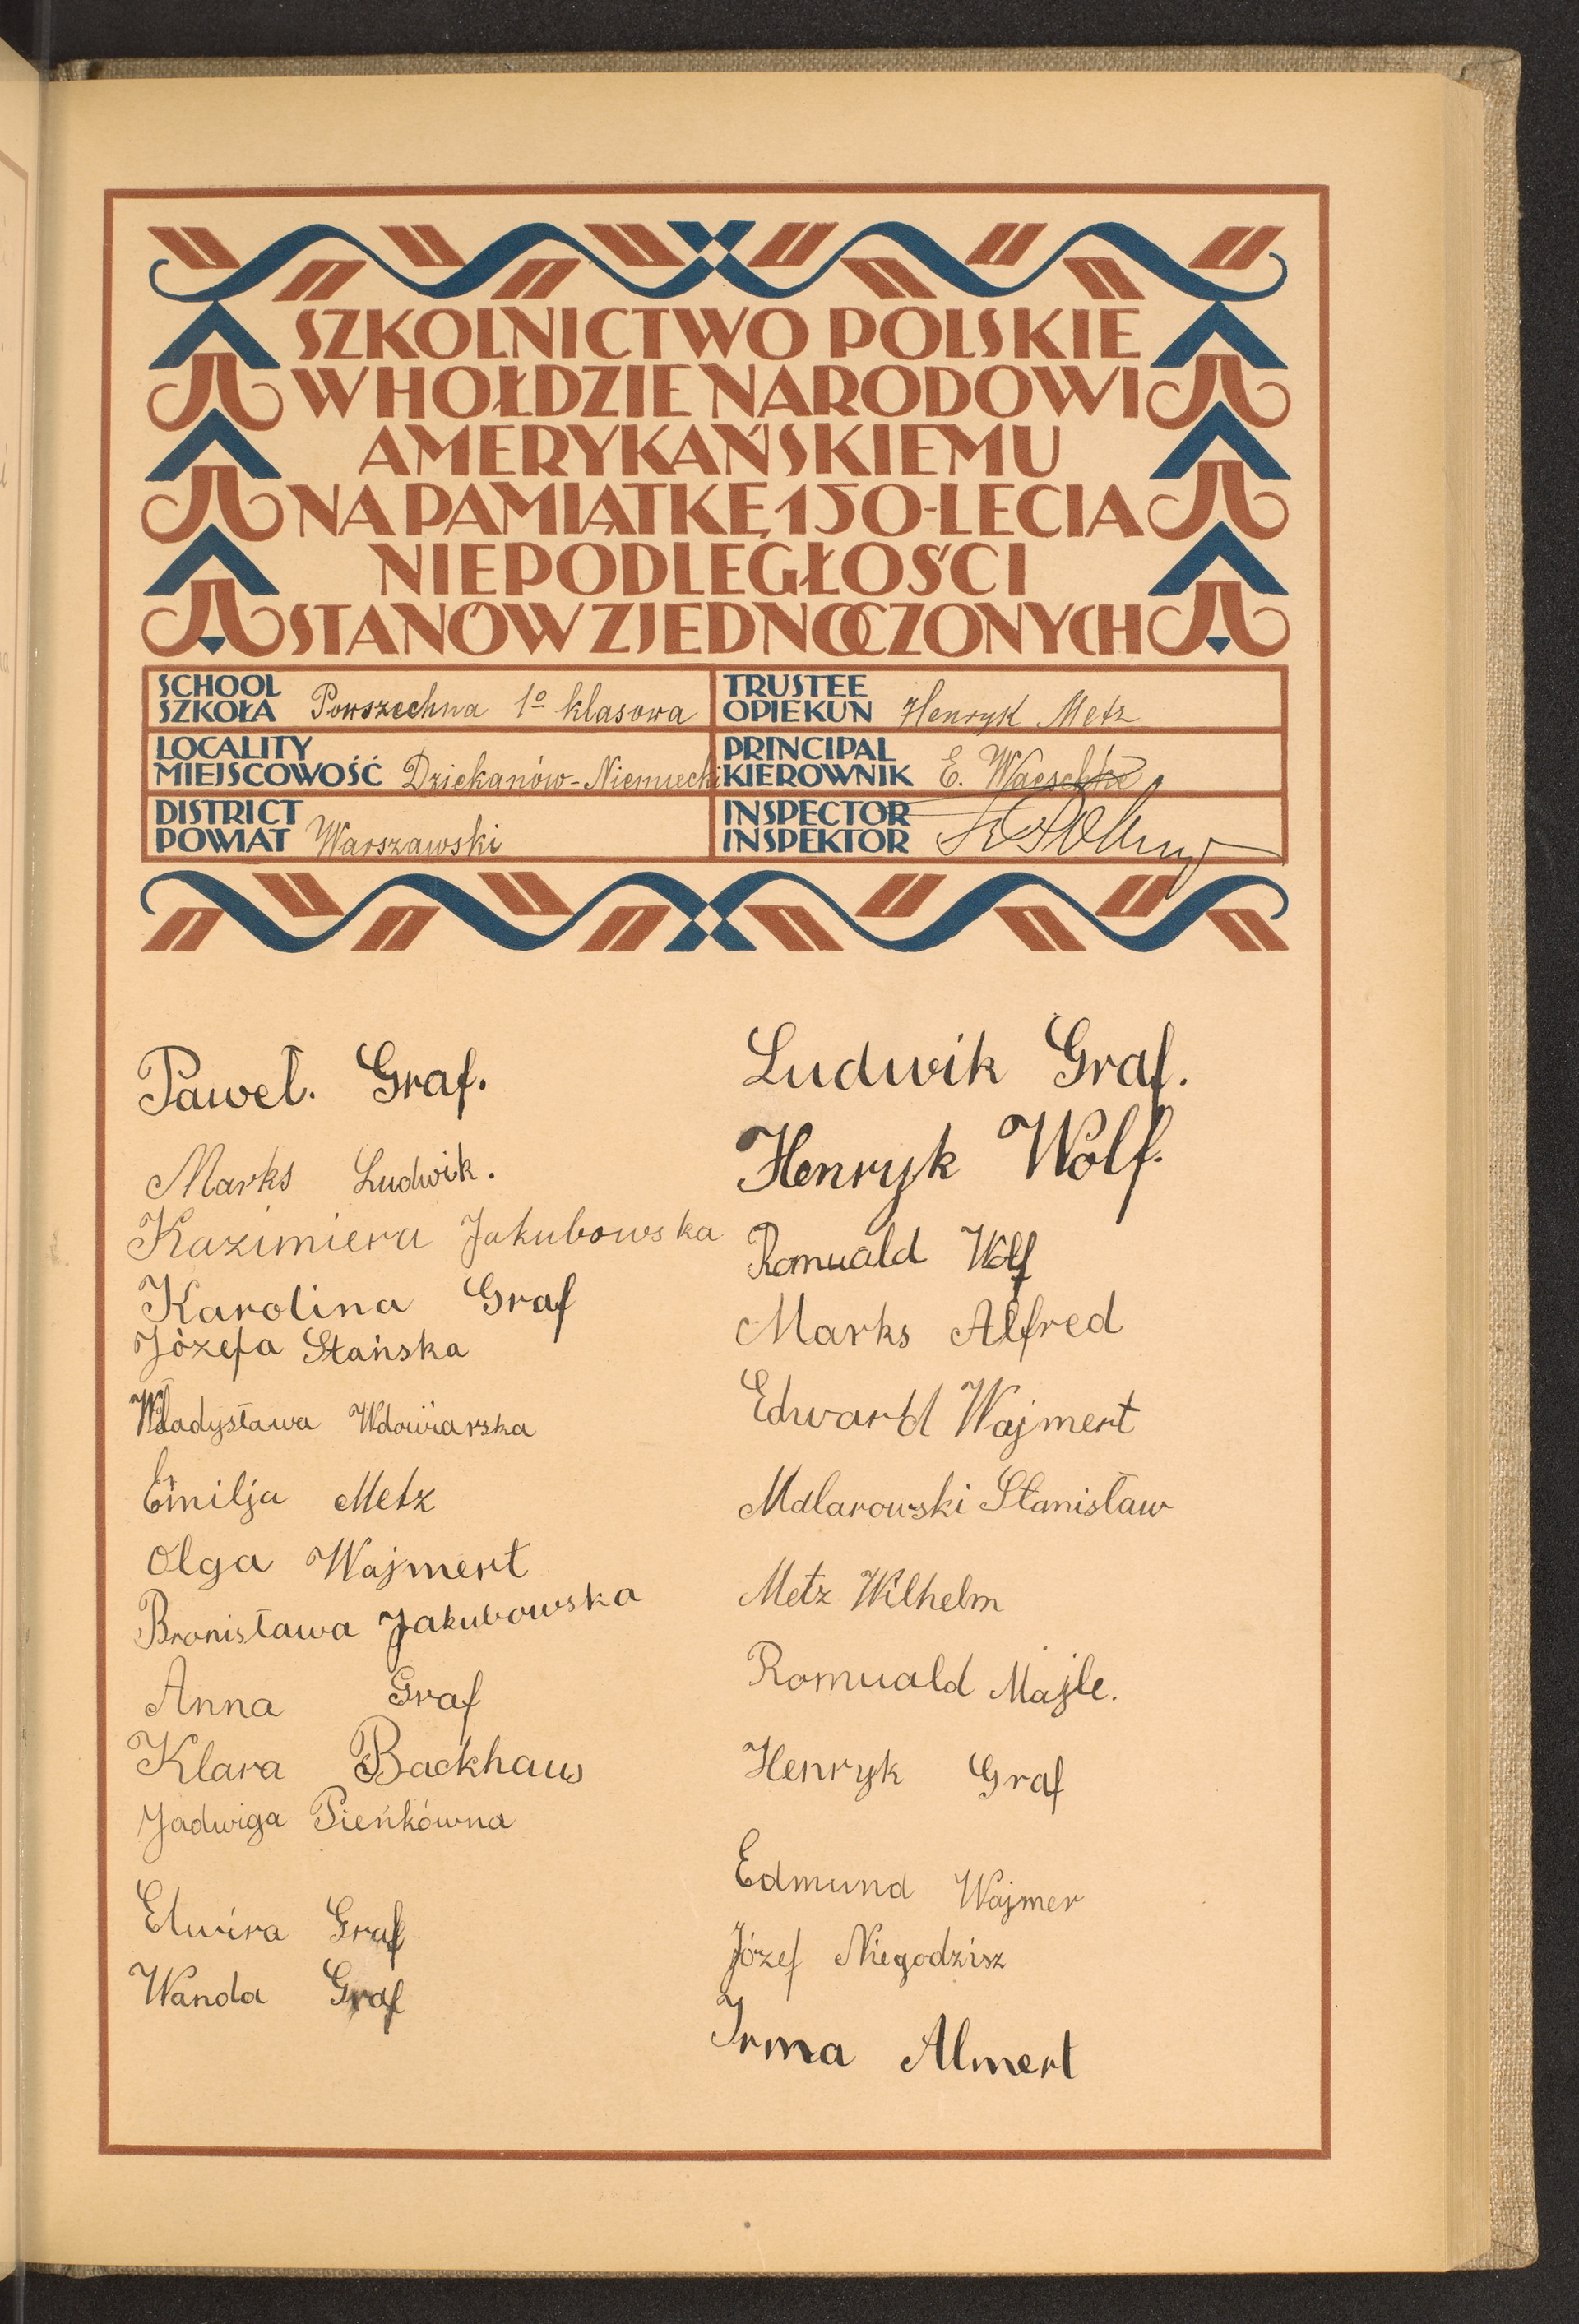 SZKOLNICTWO POLSKIE
W HOŁDZIE NARODOWI
AMERYKAŃSKIEMU
NA PAMIĄTKĘ 150-LECIA
NIEPODLEGŁOŚCI
STANÓW ZJEDNOCZONYCH
SCHOOL
SZKOŁA Powszechna 1º klasowa
TRUSTEE
OPIEKUN Henryk Metz
LOCALITY
MIEJSCOWOŚĆ Dziekanów-Niemiecki
PRINCIPAL
KIEROWNIK E. Waeschke
DISTRICT
POWIAT Warszawski
INSPECTOR
INSPEKTOR
Paweł. Graf.
Marks Ludwik.
Kazimiera Jakubowska
Karolina Graf
Józefa Stańska
Władysława Wdowiarska
Emilja Metz
Olga Wajmert
Bronisława Jakubowska
Anna Graf
Klara Backhaus
Jadwiga Pieńkówna
Elwira Graf
Wanda Graf
Ludwik Graf.
Henryk Wolf.
Romuald Wolf
Marks Alfred
Edward Wajmert
Malarowski Stanisław
Metz Wilhelm
Romuald Majle.
Henryk Graf
Edmund Wajmer
Józef Niegodzisz
Irma Almert